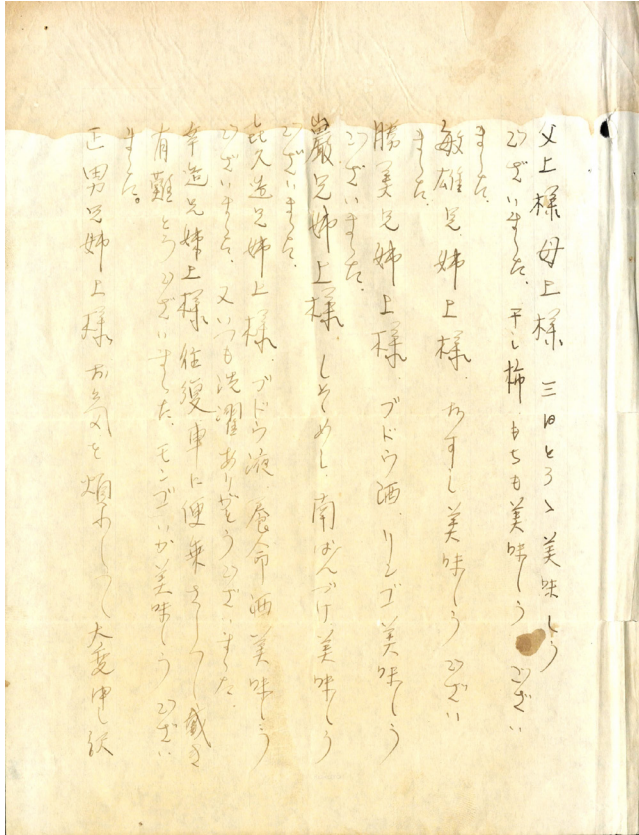 父上様母上様 三日とろゝ美味しう
ございました。干し柿 もちも美味しう ござい
ました。
敏雄兄姉上様。おすし美味しう ござい
ました。
勝美兄姉上様。ブドウ酒、リンゴ美味しう
ございました。
巌兄姉上様。しそめし、南ばんづけ美味しう
ございました。
喜久造兄姉上様。ブドウ液、養命酒美味しう
ございました。又いつも洗濯ありがとうございました。
幸造兄姉上様。往復車に便乗さしつし戴き
有難とうございました。モンゴいか美味しうござい
ました。
正男兄姉上様 お気を煩わして大変申し訳